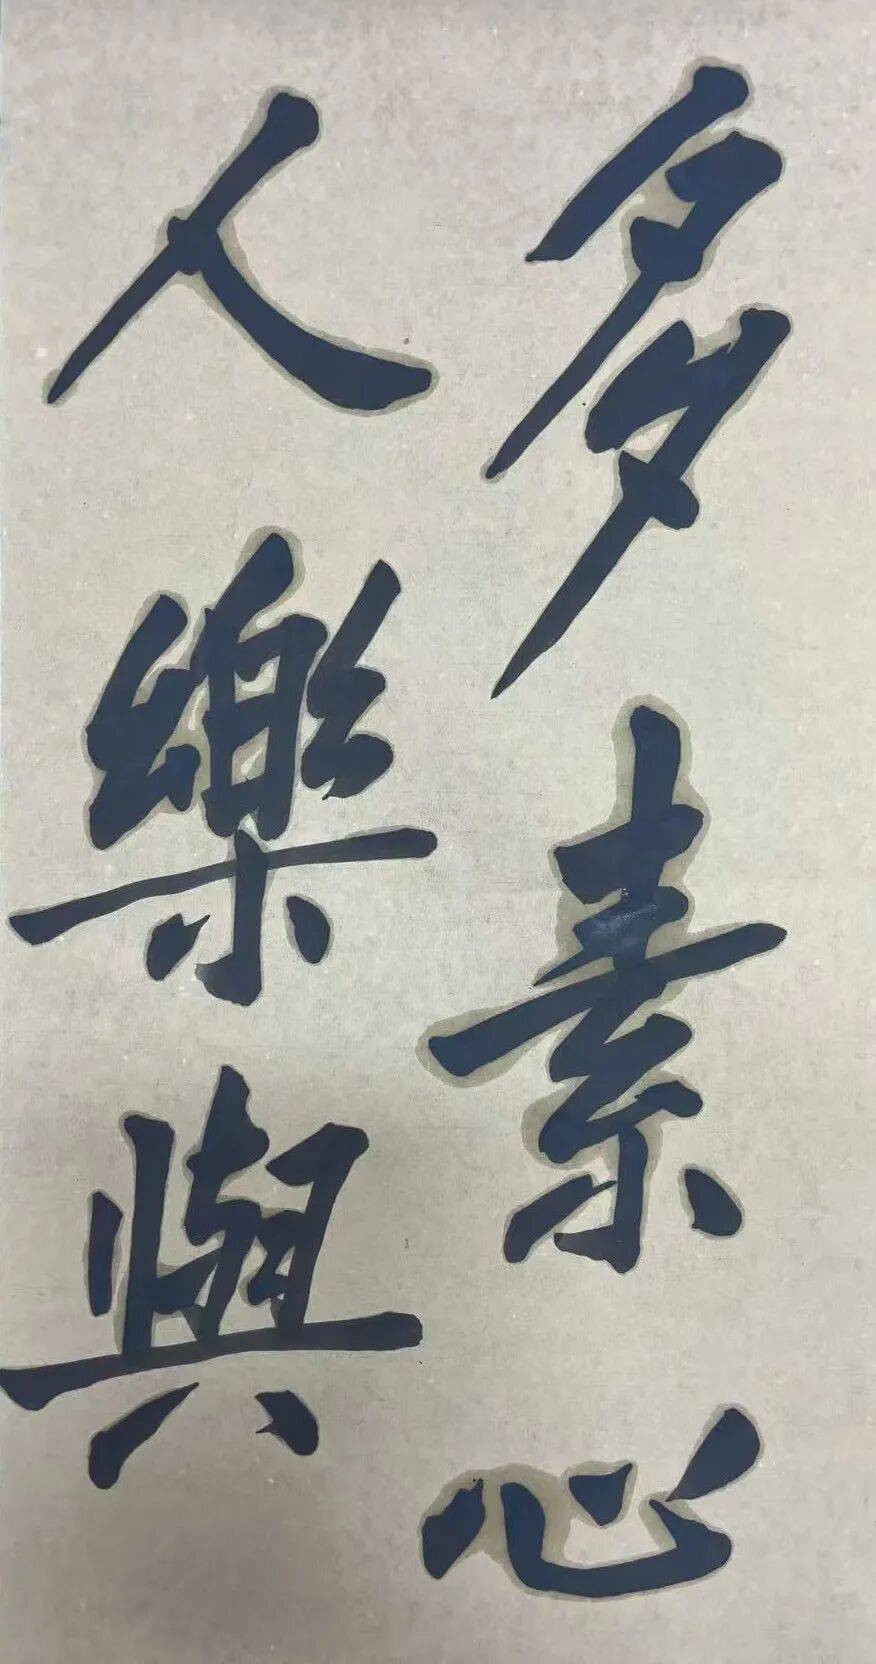 多素心
人樂與